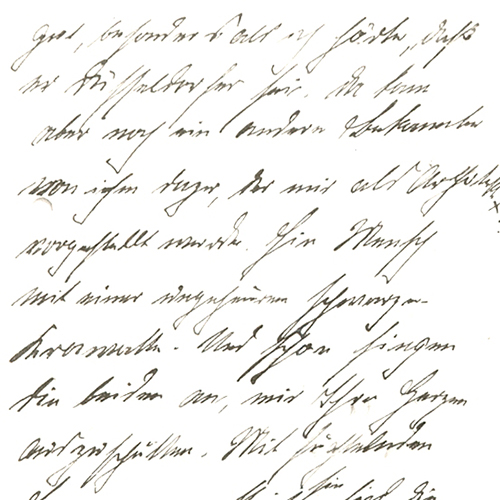 gut, besonders als ich hörte, daß
er Düsseldorfer sei. Da kam
aber noch ein anderer Bekannter
von ihm dazu, der mir als Architekt
vorgestellt wurde. Ein Mensch
mit einer ungeheuren schwarzen
Krawatte. Und schon fingen
die beiden an, mir Ihre Herzen
auszuschütten. Mit
ein die